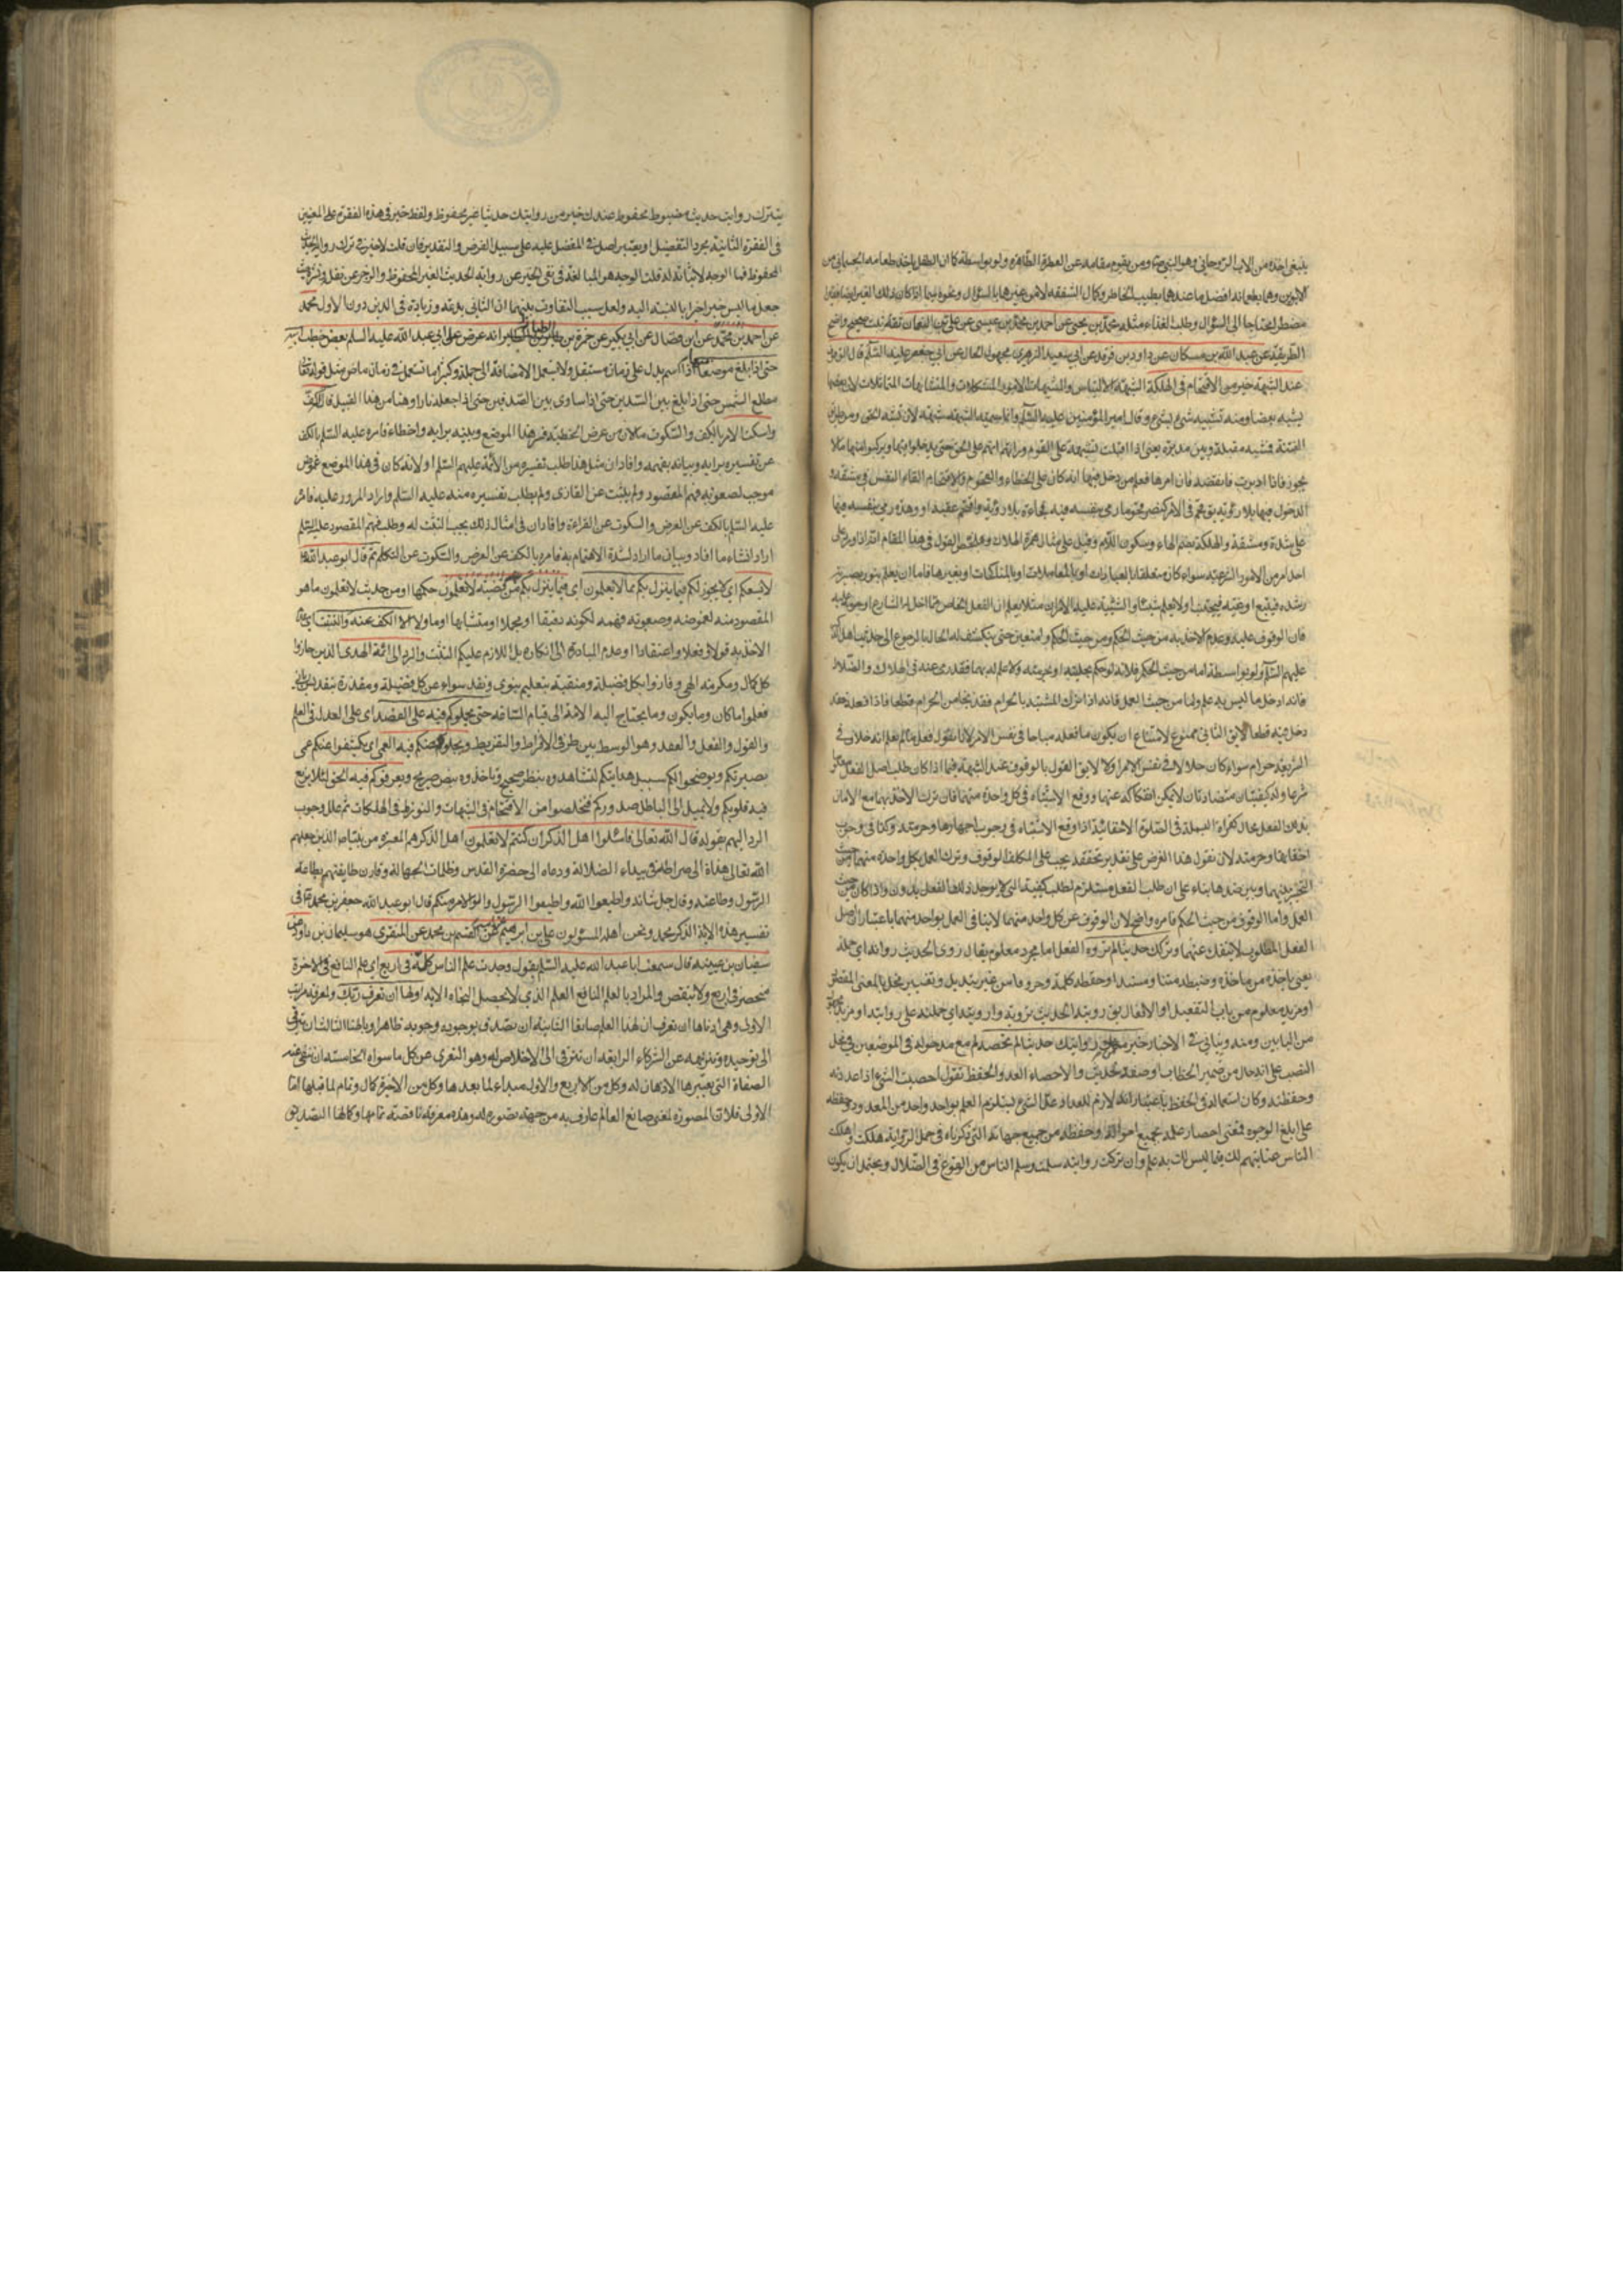 ينبغى اخذه من الاب الروحانى وهو النبى ومن يقوم مقامه من العترة الطاهرة ولو بواسطة كما ان الطفل ياخذ طعامه الجسمانى من
الابوين وهما يطعمانه افضل ما عندهما بطيب الخاطر وكمال الشفقة لا من غيرهما بالسؤال ونحوه فيما اذا كان ذلك الغير ايضا فقيرا
مضطرا محتاجا الى السؤال وطلب الغذاء مثله محمد بن يحيى عن احمد بن محمد بن عيسى عن على بن النعمان ثقة ثبت صحيح واضح
الطريقة عن عبد الله بن مسكان عن داود بن فرقد عن ابى سعيد الزهرى مجهول الحال عن ابى جعفر عليه السلم قال الوقوف
عند الشبهة خير من الاقتحام فى الهلكة الشبهة الالتباس والشبهات الامور المشكلات والمتشابهات المتماثلات لان بعضها
يشبه بعضا ومنه تشبيه شىء بشىء وقال امير المؤمنين عليه السلم وانما سميت الشبهة شبهة لانها تشبه الحق ومن طرق
الفتنة فتشبه مقبلة وبين مدبرة يعنى اذا اقبلت تشبهت على القوم وارتهم انهم على الحق حتى يدخلوا فيها ويركبوا منها ما لا
يجوز فاذا ادبرت فانقضت بان امرها فعلم من دخل فيها انه كان على الخطاء والقحوم والاقتحام القاء النفس فى مشقة
الدخول فيها بلا روية يق قحم فى الامر كنصر قحوما رمى بنفسه فيه فجاءة بلا روية واقتحم عقبة او وهدة رمى بنفسه فيها
على شدة ومشقة والهلكة بضم الهاء وسكون اللام وقيل على مثال همزة الهلاك وملخص القول فى هذا المقام انه اذا ورد على
احد امر من الامور الشرعية سواء كان متعلقا بالعبادات او بالمعاملات او بالمناكحات او بغيرها فاما ان يعلم بنور بصيرته
رشده فيتبع او غيه فيجتنب او لا يعلم شيئا واشتبه عليه الامران مثلا يعلم ان الفعل الخاص مما احل له الشارع او حرمه عليه
فان الوقوف عليه وعدم الاخذ به من حيث الحكم ومن حيث العمل متعين حتى ينكشف له الحال بالرجوع الى حديث اهل الذكر
عليهم السلم ولو بواسطة اما من حيث الحكم فلانه لو حكم بحليته او بحرمته ولا علم له بهما فقد رمى عنه فى الهلاك والضلال
فانه ادخل ما ليس به علم واما من حيث العمل فانه اذا ترك المشتبه بالحرام فقد نجا من الحرام قطعا فاذا فعله فقد
دخل فيه قطعا لايق الثانى ممنوع لامتناع ان يكون ما فعله مباحا فى نفس الامر لانا نقول فعل ما لم يعلم انه حلال فى
الشريعة حرام سواء كان حلالا فى نفس الامر اولا لايق القول بالوقوف عند الشبهة فيما اذا كان طلب اصل الفعل معلوما
شرعا وله كيفيتان متضادتان لا يمكن انفكاكه عنهما ووقع الاشتباه فى كل واحدة منهما فان ترك الاخذ بهما مع الاتيان
بذلك الفعل محال كقراءة البسملة فى الصلوة الاخفاتية اذا وقع الاشتباه فى وجوب اجهارها وحرمته وكذا فى وجوب
اخفاتها وحرمته لانا نقول هذا الفرض على تقدير تحققه يجب على المكلف الوقوف وترك العمل بكل واحدة منهما من حيث
التخيير بينهما وبين ضدهما بناء على ان طلب الفعل مستلزم لطلب كيفيته التى لا يوجد ذلك الفعل بدونه واذا كان من حيث
العمل واما الوقوف من حيث الحكم فامره واضح لان الوقوف عن كل واحد منهما لا ينافى العمل بواحد منهما باعتبار ان اصل
الفعل المطلوب لا ينفك عنهما وتركك حديثا لم تروه الفعل اما مجرد معلوم يقال روى الحديث رواية اى حمله
يعنى ياخذه من ماخذه وضبطه متنا وسندا وحفظه كلمة وحروفا من غير تبديل وتغيير مخل بالمعنى المقصود
او مزيد معلوم من باب التفعيل او الافعال يق رويته الحديث تروية وارويته اى حملته على روايته او مزيد مجهول
من البابين ومنه روينا فى الاخبار خير من روايتك حديثا لم تحصه لم مع مدخوله فى الموضعين فى محل
النصب على انه حال من ضمير الخطاب او صفة لحديث والاحصاء العد والحفظ تقول احصيت الشىء اذا عددته
وحفظته وكان استعماله فى الحفظ باعتبار انه لازم للعد اذ عد الشىء يستلزم العلم بواحد واحد من المعدود وحفظه
على ابلغ الوجوه فمعنى احصاء الحديث علمه بجميع احواله وحفظه من جميع جهاته التى ذكرناه فى حمل الرواية هلكت واهلكت
الناس متابعتهم لك فيما ليس لك به علم وان تركت روايته سلمت وسلم الناس من الوقوع فى الضلال ويحتمل ان يكون
يترك روايت حديث مضبوط محفوظ عندك خير من روايتك حديثا غير محفوظ ولفظ خير فى هذه الفقرة على المعنيين
فى الفقرة الثانية مجرد التفضيل او يعتبر اصل فى المفضل عليه على سبيل الفرض والتقدير فان قلت لا خير فى ترك رواية الحديث
المحفوظ فما الوجه لاثباته له قلت الوجه هو المبالغة فى نفى الخير عن رواية الحديث الغير المحفوظ والزجر عن نقلها حيث
جعل ما ليس خيرا خيرا بالنسبة اليه ولعل سبب التفاوت بينهما ان الثانى بدعة وزيادة فى الدين دون الاول محمد
عن احمد بن محمد عن ابن فضال عن ابن بكير عن حمزة بن الطيار انه عرض على ابى عبد الله عليه السلم بعض خطب ابيه
حتى اذا بلغ موضعا منها اذا اسم يدل على زمان مستقبل ولا تستعمل الا مضافة الى جملة وكثيرا ما تستعمل فى زمان ماض مثل قوله تعالى
مطلع الشمس حتى اذا بلغ بين السدين حتى اذا ساوى بين الصدفين حتى اذا جعله نارا وهنا من هذا القبيل قال له كف
واسكت الامر بالكف والسكوت اما لان من عرض الخطبة فسر هذا الموضع وبينه برايه واخطاء فامره عليه السلم بالكف
عن تفسيره برايه وبيانه بفهمه وافاد ان مثل هذا طلب تفسيره من الائمة عليهم السلم او لانه كان فى هذا الموضع غموض
موجب لصعوبة فهم المقصود ولم يتثبت عند القارى ولم يطلب تفسيره منه عليه السلم واراد المرور عليه فامره
عليه السلم بالكف عن العرض والسكوت عن القراءة وافاد ان فى امثال ذلك يجب التثبت له وطلب فهم المقصود عليه السلم
اراد انشاء ما افاد وبيان ما اراد لشدة الاهتمام به فامره بالكف عن العرض والسكوت عن التكلم ثم قال ابو عبد الله
لا يسعكم اى لا يجوز لكم فيما ينزل بكم مما لا تعلمون اى فيما ينزل بكم من قضية لا تعلمون حكمها او من حديث لا تعلمون ما هو
المقصود منه لغموضه وصعوبة فهمه لكونه دقيقا او مجملا او متشابها او ماولا الا الكف عنه والتثبت اى عدم
الاخذ به قولا وفعلا واعتقادا وعدم المبادرة الى انكاره بل اللازم عليكم التثبت والرد الى ائمة الهدى الذين حازوا
كل كمال ومكرمة الهى وفازوا بكل فضيلة ومنقبة بتعليم نبوى
فعلموا ما كان وما يكون وما يحتاج اليه الامة الى قيام الساعة حتى يحملوكم فيه على القصد اى على العدل فى العلم
والقول والفعل والعقد وهو الوسط بين طرفى الافراط والتفريط ويجلوا عنكم فيه العمى اى يكشفوا عنكم عمى
بصيرتكم ويوضحوا لكم سبيل هدايتكم لتشاهدوه بنظر صحيح وتاخذوه بنص صريح ويعرفوكم فيه الحق لئلا يزيغ
فيه قلوبكم ولا تميل الى الباطل صدوركم فتخلصوا من الاقتحام فى الشبهات والتورط فى الهلكات ثم علل وجوب
الرد اليهم بقوله قال الله تعالى فاسئلوا اهل الذكر ان كنتم لا تعلمون اهل الذكر هم العترة الذين جعلهم
الله تعالى هداة الى صراطه فى بيداء الضلالة ودعاة الى حضرة القدس وظلمات الجهالة وقارن طاعتهم بطاعة
الرسول وطاعته وقال جل شانه واطيعوا الله واطيعوا الرسول واولى الامر منكم قال ابو عبد الله جعفر بن محمد فى
تفسير هذه الاية الذكر محمد ونحن اهله المسئولون على بن ابرهيم عن ابيه عن القسم بن محمد عن المنقرى هو سليمان بن داود عن
سفيان بن عيينة قال سمعت ابا عبد الله عليه السلم يقول وجدت علم الناس كله فى اربع اى علم النافع فى الاخرة
منحصر فى اربع ولا ينقص والمراد بالعلم النافع العلم الذى لا تحصل النجاة الا به اولها ان تعرف ربك ولمعرفته مراتب
الاولى وهى ادناها ان تعرف ان لهذا العالم صانعا الثانية ان تصدق بوجوده ووجوبه ظاهرا وباطنا الثالثة ان تترقى
الى توحيده وتنزيهه عن الشركاء الرابعة ان تترقى الى الاخلاص له وهو التعرى عن كل ما سواه الخامسة ان تنفى عنه
الصفات التى يعتبرها الاذهان له وكل من الاربع والاول مبداء لما بعدها وكل من الاخيرة كمال وتمام لما قبلها اما
الاولى فلان المتصور لمعنى صانع العالم عارف به من جهة تصوره له وهذه معرفة ناقصة تمامها وكمالها التصديق